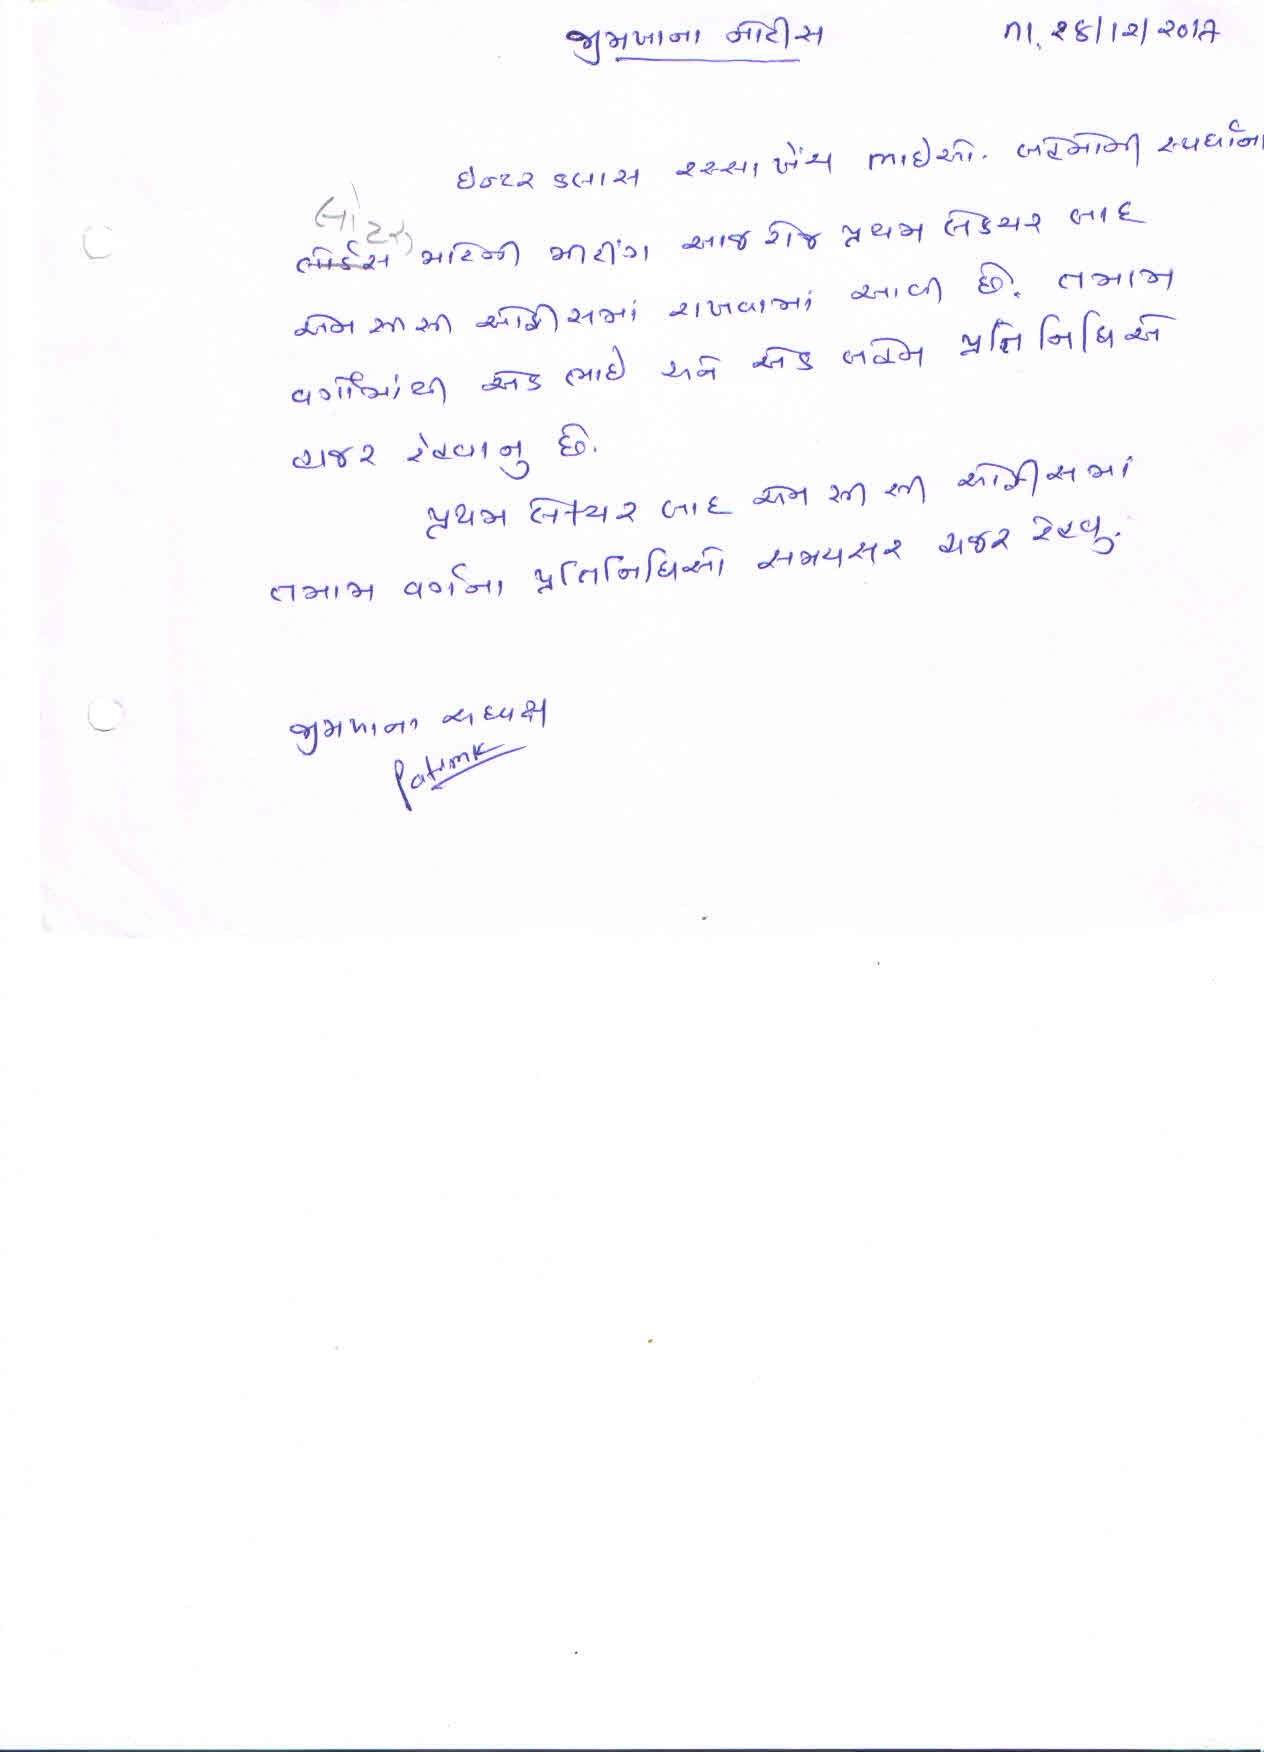 જીમખાના નોટીસ તા. ૨૬/૧૨/૨૦૧૭
ઇન્ટર કલાસ રસ્સા ખેંચ ભાઇઓ. બહેનોની સ્પર્ધાના
લોટસ
માટેની મીટીંગ આજ રોજ પ્રથમ લેકચર બાદ
એન સી સી ઓફીસમાં રાખવામાં આવી છે. તમામ
વર્ગોમાંથી એક ભાઇ અને એક બહેન પ્રતિનિધિએ
હાજર રેહવાનુ છે.
પ્રથમ લેકચર બાદ એન સી સી ઓફીસમાં
તમામ વર્ગના પ્રતિનિધિઓ સમયસર હાજર રેહવુ.
જીમખાના અધ્યક્ષ